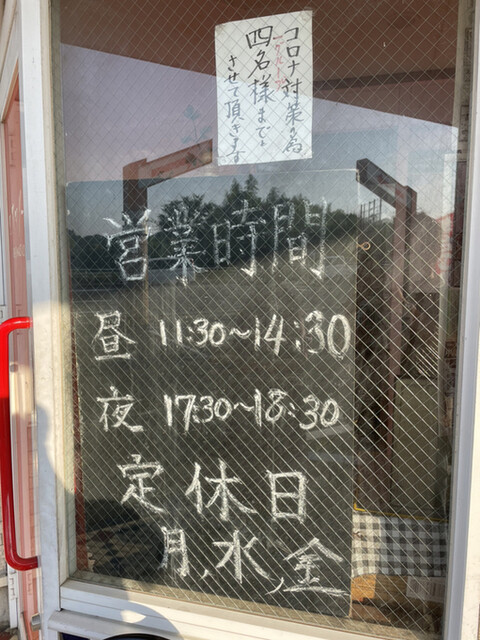 コロナ対策の為
一グループ
四名様までと
させて頂きます
営業時間
昼 11:30〜14:30
夜 17:30〜18:30
定休日
月、水、金